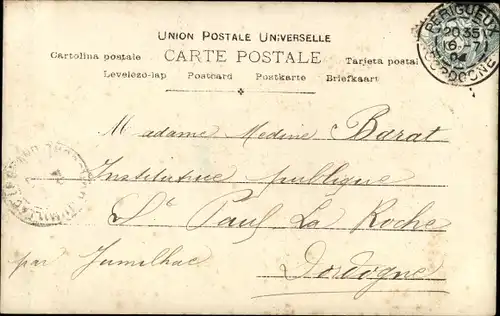 UNION POSTALE UNIVERSELLE
Cartolina postale CARTE POSTALE Tarjeta postal
Levelezo-lap Postcard Postkarte Briefkaart
PÉRIGUEUX
20 35
6 - 7
04
DORDOGNE
Madame Medine Barat
Institutrice publique
St Paul La Roche
par Jumilhac Dordogne